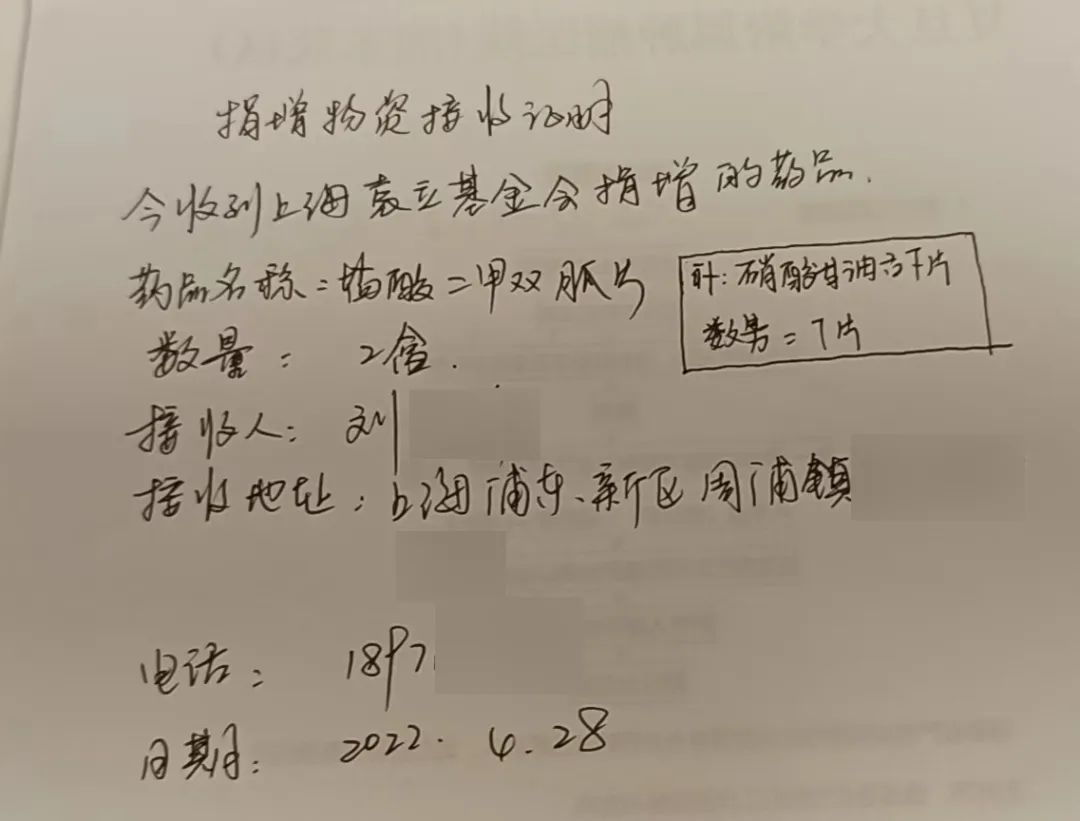 捐增物资接收证明
今收到上海袁立基金会捐增的药品.
药品名称:盐酸二甲双胍片
数量: 2盒.
附:硝酸甘油舌下片
数量:7片
接收人: 刘
接收地址:上海浦东、新区周浦鎮
电话: 1897
日期: 2022. 4.28